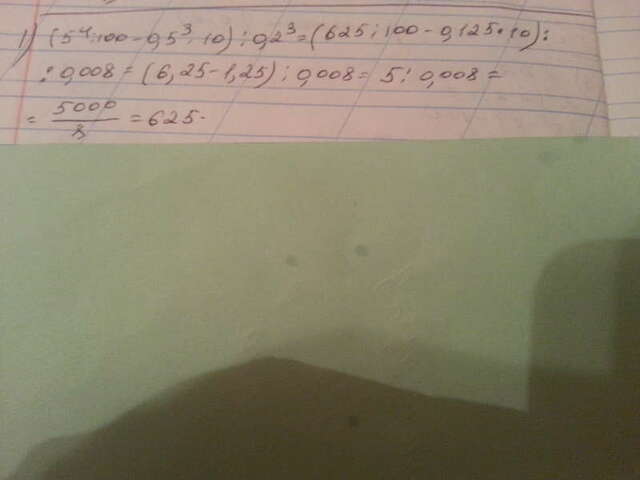 1) (5⁴:100 - 0,5³·10) : 0,2³ = (625 : 100 - 0,125·10) :
: 0,008 = (6,25 - 1,25) : 0,008 = 5 : 0,008 =
= 5000/8 = 625.